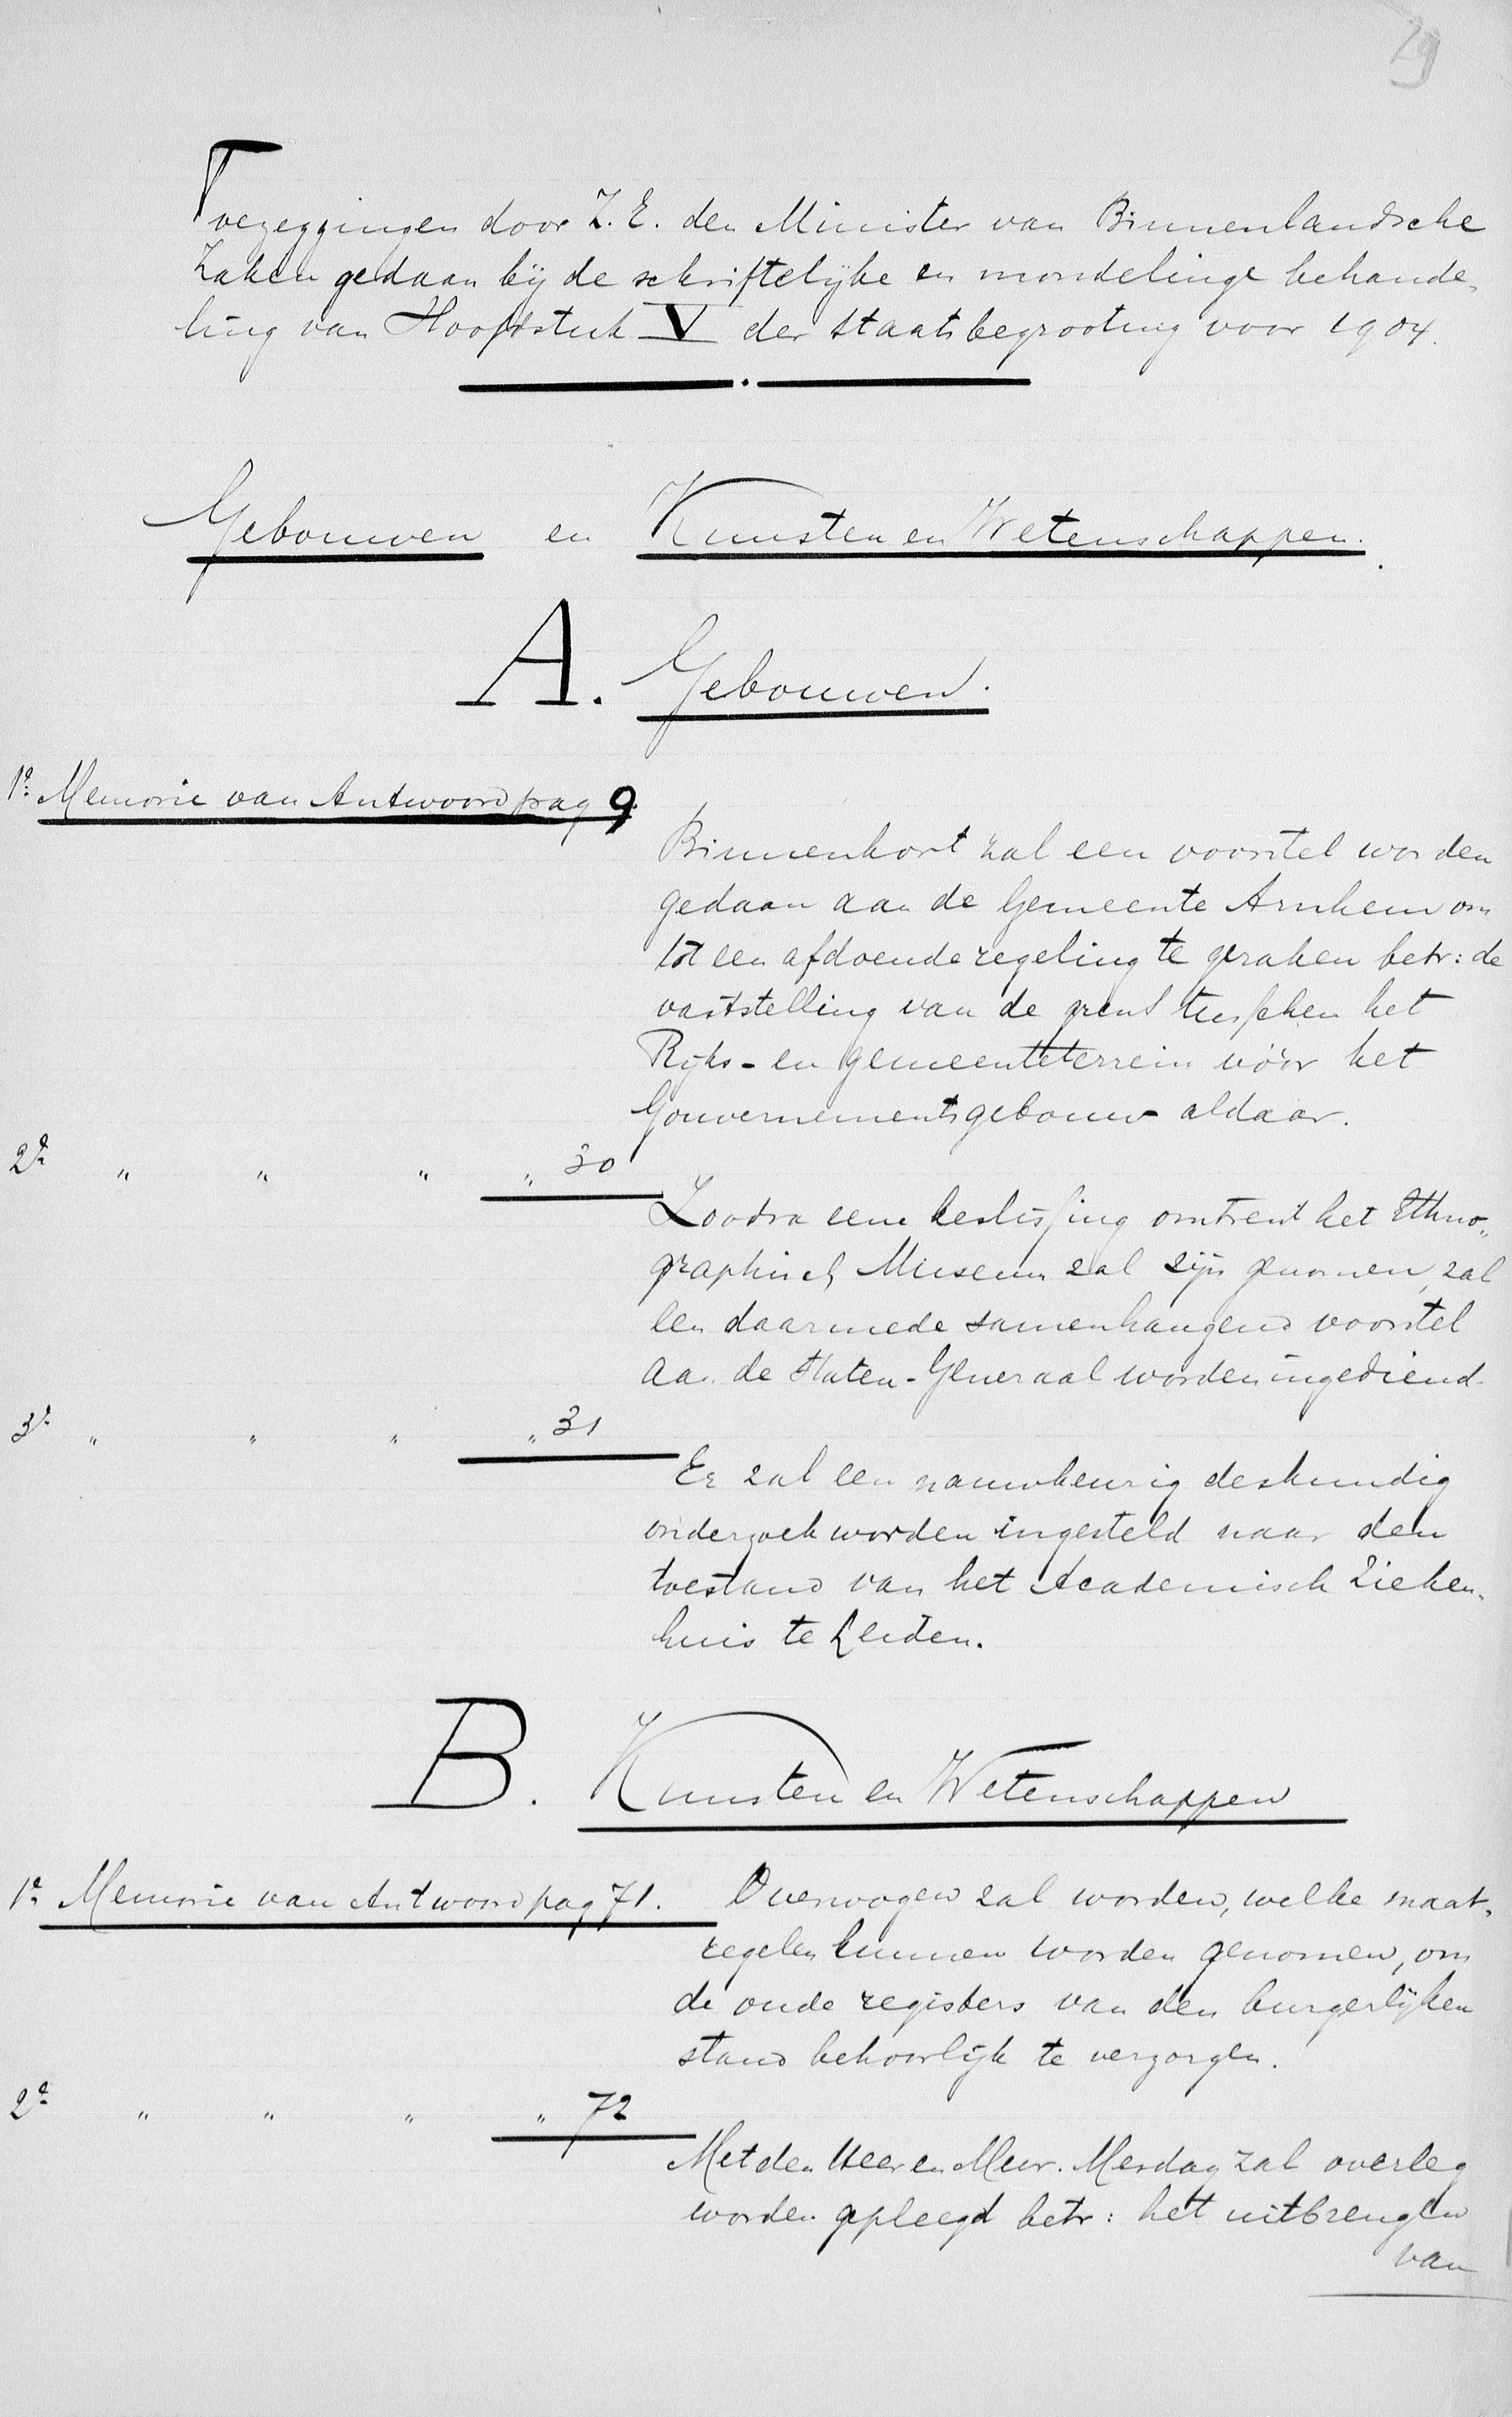 29
Toezeggingen door Z. E. den Minister van Binnenlandsche
Zaken gedaan bij de schriftelijke en mondelinge behande„
ling van Hoofdstuk V der Staatsbegrooting voor 1904.
Gebouwen en Kunsten en Wetenschappen.
A. Gebouwen.
1e. Memorie van Antwoord pag 9.
Binnenkort zal een voorstel worden
gedaan aan de Gemeente Arnhem om
tot een afdoende regeling te geraken betr: de
vaststelling van de grens tusschen het
Rijks- en gemeenteterrein vóór het
Gouvernementsgebouw aldaar.
2e. " " " " 30
Zoodra eene beslissing omtrent het Ethno„
graphisch Museum zal zijn genomen, zal
een daarmede samenhangend voorstel
aan de Staten-Generaal worden ingediend.
3e. " " " " 31
Er zal een nauwkeurig deskundig
onderzoek worden ingesteld naar den
toestand van het Academisch Zieken„
huis te Leiden.
B. Kunsten en Wetenschappen
1e. Memorie van Antwoord pag 71.
Overwogen zal worden, welke maat„
regelen kunnen worden genomen, om
de oude registers van den burgerlijken
stand behoorlijk te verzorgen.
2e. " " " " 72
Met den Heer en Mevr. Mesdag zal overleg
worden gepleegd betr: het uitbrengen
van